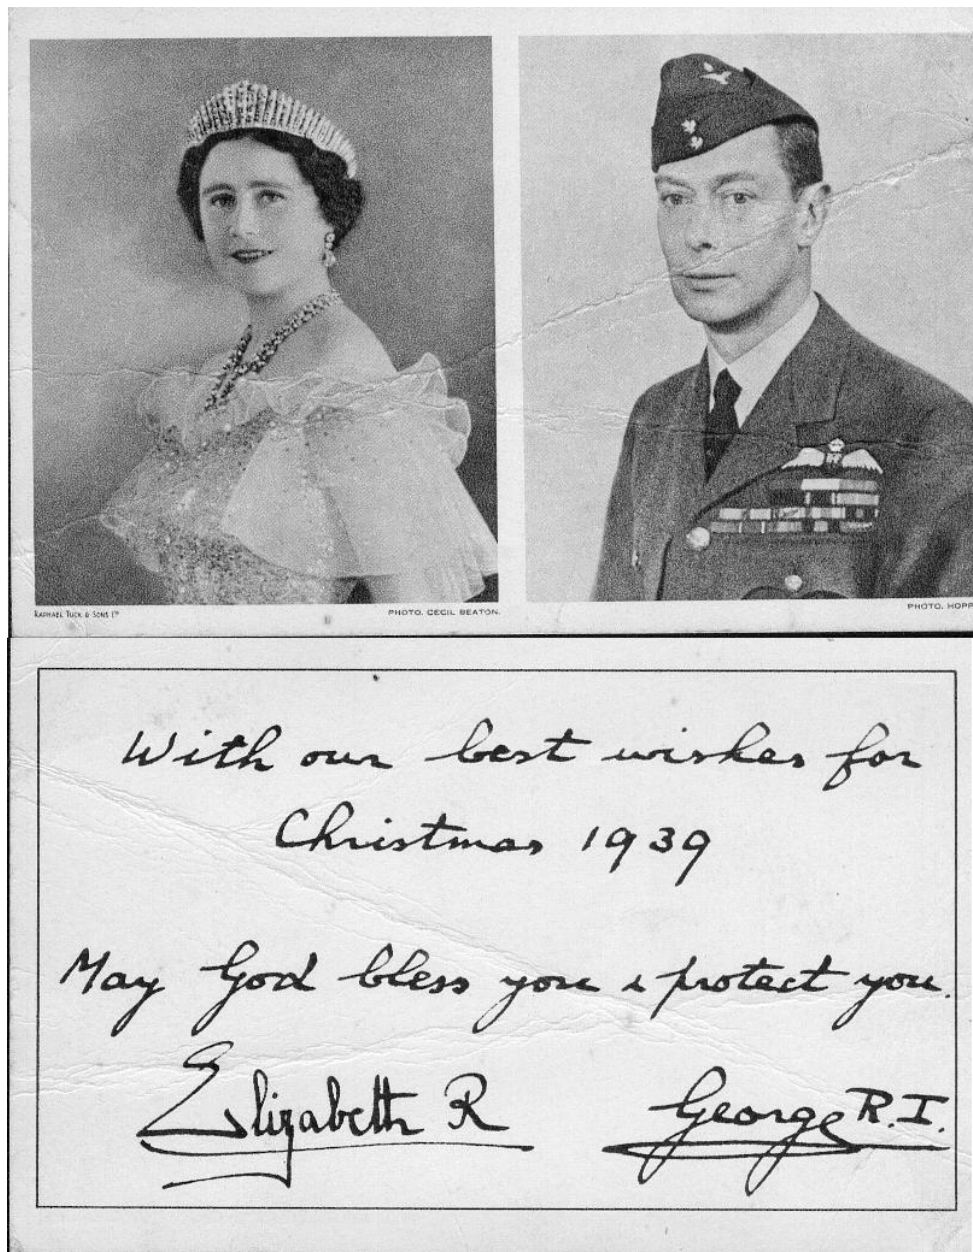 RAPHAEL TUCK & SONS LTD
PHOTO. CECIL BEATON.
PHOTO. HOPP
With our best wishes for
Christmas 1939
May God bless you & protect you.
Elizabeth R
George R.I.